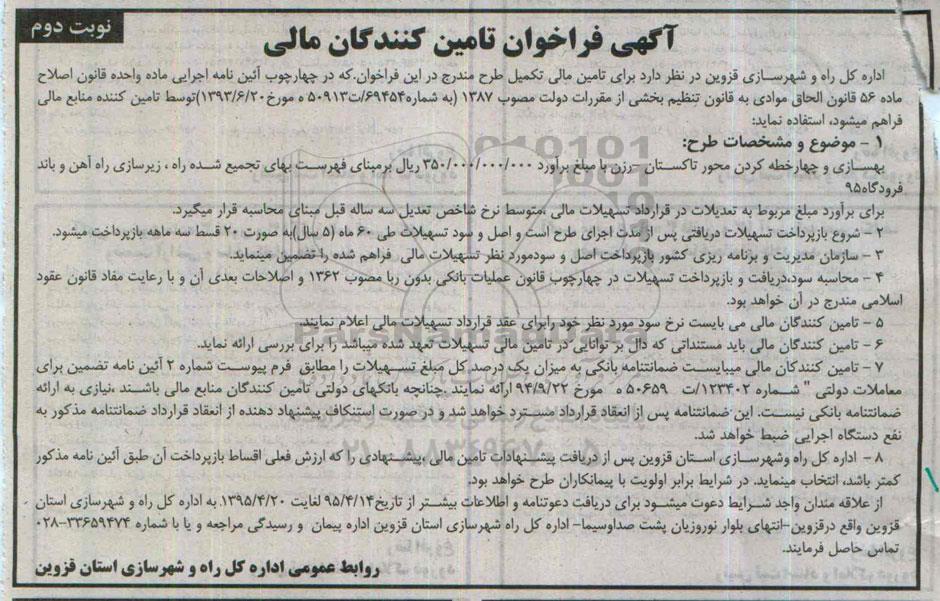 نوبت دوم
آگهی فراخوان تامین کنندگان مالی
اداره کل راه و شهرسازی قزوین در نظر دارد برای تامین مالی تکمیل طرح مندرج در این فراخوان.که در چهارچوب آئین نامه اجرایی ماده واحده قانون اصلاح
ماده ۵۶ قانون الحاق موادی به قانون تنظیم بخشی از مقررات دولت مصوب ۱۳۸۷ (به شماره۶۹۴۵۴/ت۵۰۹۱۳ ه مورخ۱۳۹۳/۶/۲۰)توسط تامین کننده منابع مالی
فراهم میشود، استفاده نماید:
۱ - موضوع و مشخصات طرح:
بهسازی و چهارخطه کردن محور تاکستان - رزن با مبلغ برآورد ۳۵۰/۰۰۰/۰۰۰/۰۰۰ ریال برمبنای فهرست بهای تجمیع شده راه ، زیرسازی راه آهن و باند
فرودگاه۹۵
برای برآورد مبلغ مربوط به تعدیلات در قرارداد تسهیلات مالی ،متوسط نرخ شاخص تعدیل سه ساله قبل مبنای محاسبه قرار میگیرد.
۲ - شروع بازپرداخت تسهیلات دریافتی پس از مدت اجرای طرح است و اصل و سود تسهیلات طی ۶۰ ماه (۵ سال)به صورت ۲۰ قسط سه ماهه بازپرداخت میشود.
۳ - سازمان مدیریت و برنامه ریزی کشور بازپرداخت اصل و سودمورد نظر تسهیلات مالی فراهم شده را تضمین مینماید.
۴ - محاسبه سود،دریافت و بازپرداخت تسهیلات در چهارچوب قانون عملیات بانکی بدون ربا مصوب ۱۳۶۲ و اصلاحات بعدی آن و با رعایت مفاد قانون عقود
اسلامی مندرج در آن خواهد بود.
۵ - تامین کنندگان مالی می بایست نرخ سود مورد نظر خود رابرای عقد قرارداد تسهیلات مالی اعلام نمایند.
۶ - تامین کنندگان مالی باید مستنداتی که دال بر توانایی در تامین مالی تسهیلات تعهد شده میباشد را برای بررسی ارائه نماید.
۷ - تامین کنندگان مالی میبایست ضمانتنامه بانکی به میزان یک درصد کل مبلغ تسهیلات را مطابق فرم پیوست شماره ۲ آئین نامه تضمین برای
معاملات دولتی " شماره ۱۲۳۴۰۲/ت ۵۰۶۵۹ ه مورخ ۹۴/۹/۲۲ ارائه نمایند .چنانچه بانکهای دولتی تامین کنندگان منابع مالی باشند ،نیازی به ارائه
ضمانتنامه بانکی نیست. این ضمانتنامه پس از انعقاد قرارداد مسترد خواهد شد و در صورت استنکاف پیشنهاد دهنده از انعقاد قرارداد ضمانتنامه مذکور به
نفع دستگاه اجرایی ضبط خواهد شد.
۸ - اداره کل راه وشهرسازی استان قزوین پس از دریافت پیشنهادات تامین مالی ،پیشنهادی را که ارزش فعلی اقساط بازپرداخت آن طبق آئین نامه مذکور
کمتر باشد، انتخاب مینماید. در شرایط برابر اولویت با پیمانکاران طرح خواهد بود.
از علاقه مندان واجد شرایط دعوت میشود برای دریافت دعوتنامه و اطلاعات بیشتر از تاریخ۹۵/۴/۱۴ لغایت ۱۳۹۵/۴/۲۰ به اداره کل راه و شهرسازی استان
قزوین واقع درقزوین-انتهای بلوار نوروزیان پشت صداوسیما- اداره کل راه شهرسازی استان قزوین اداره پیمان و رسیدگی مراجعه و یا با شماره ۳۳۶۵۹۴۷۴-۰۲۸
تماس حاصل فرمایند.
روابط عمومی اداره کل راه و شهرسازی استان قزوین